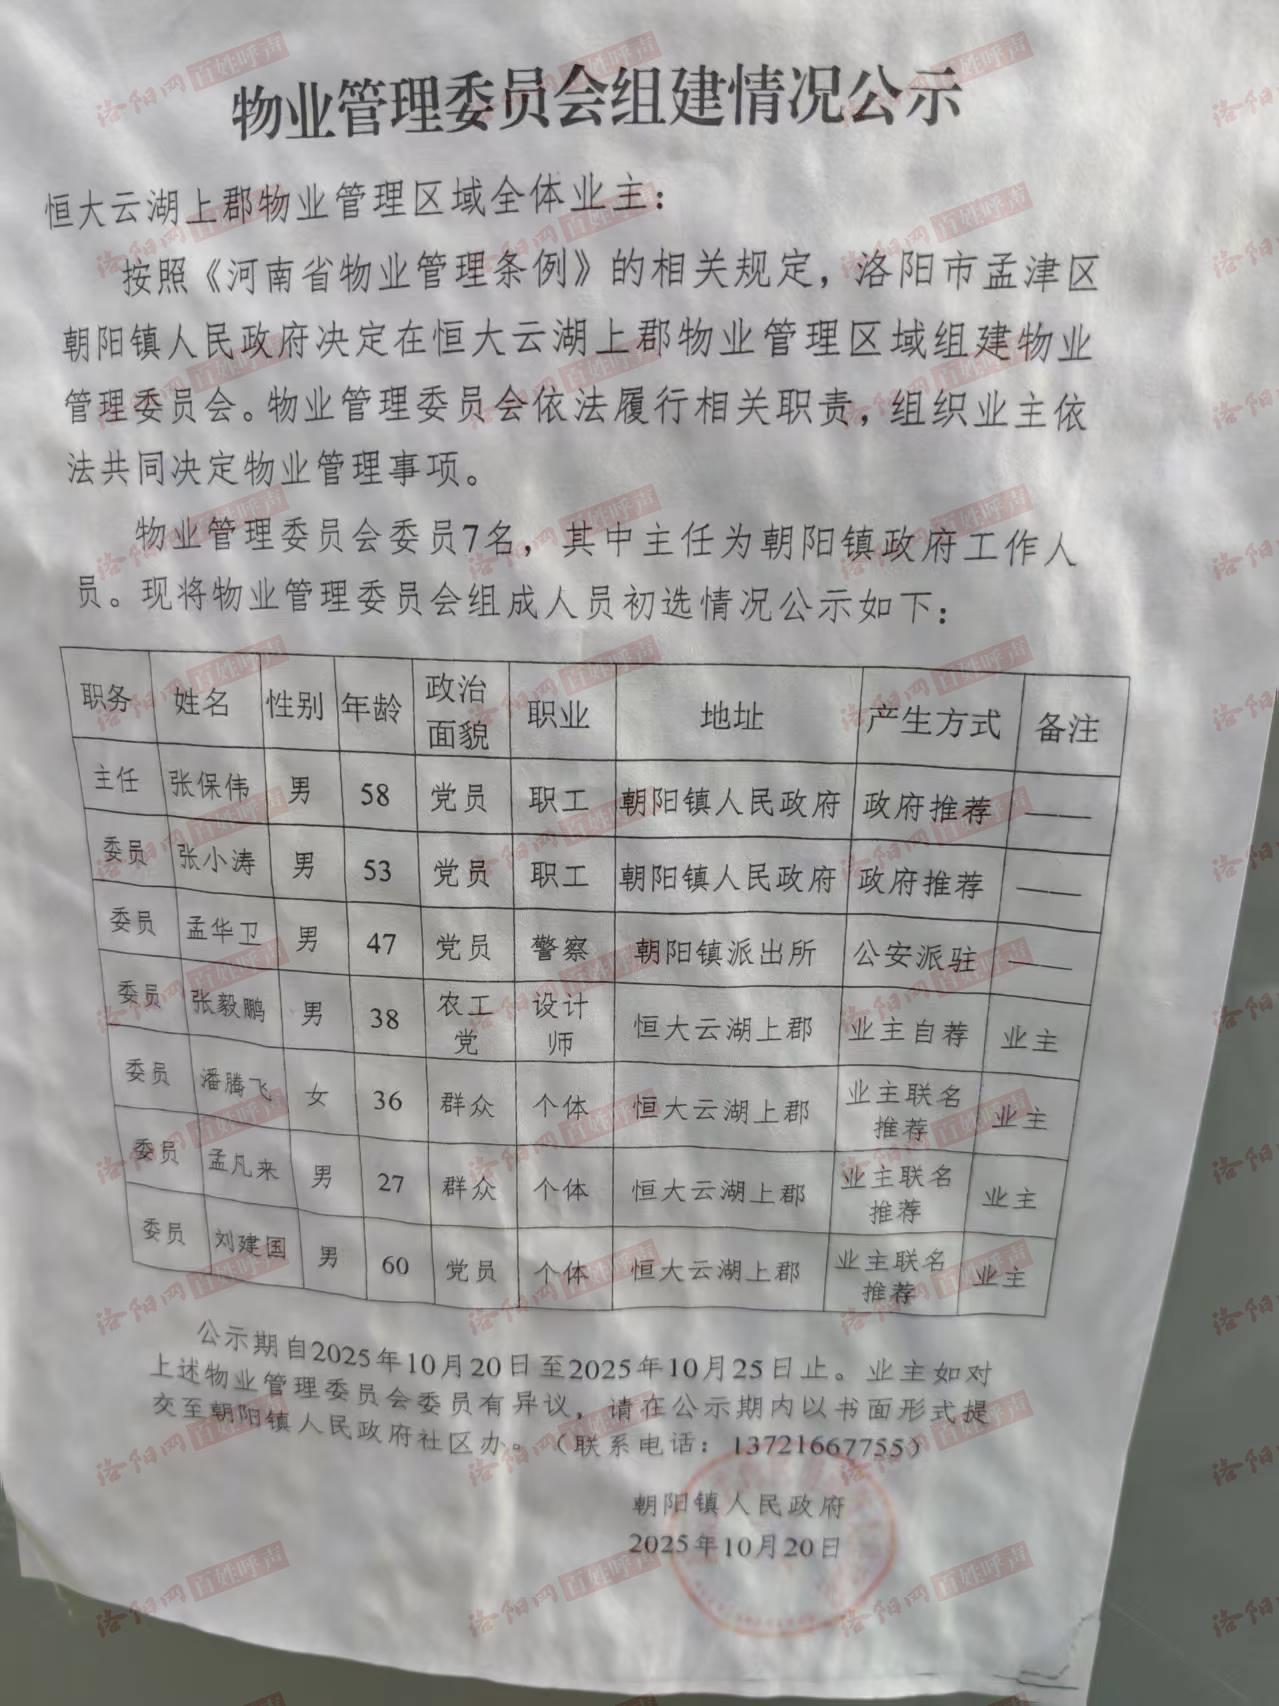 物业管理委员会组建情况公示
恒大云湖上郡物业管理区域全体业主：
按照《河南省物业管理条例》的相关规定，洛阳市孟津区
朝阳镇人民政府决定在恒大云湖上郡物业管理区域组建物业
管理委员会。物业管理委员会依法履行相关职责，组织业主依
法共同决定物业管理事项。
物业管理委员会委员7名，其中主任为朝阳镇政府工作人
员。现将物业管理委员会组成人员初选情况公示如下：
职务 姓名 性别 年龄 政治面貌 职业 地址 产生方式 备注
主任 张保伟 男 58 党员 职工 朝阳镇人民政府 政府推荐 ——
委员 张小涛 男 53 党员 职工 朝阳镇人民政府 政府推荐 ——
委员 孟华卫 男 47 党员 警察 朝阳镇派出所 公安派驻 ——
委员 张毅鹏 男 38 农工党 设计师 恒大云湖上郡 业主自荐 业主
委员 潘腾飞 女 36 群众 个体 恒大云湖上郡 业主联名推荐 业主
委员 孟凡来 男 27 群众 个体 恒大云湖上郡 业主联名推荐 业主
委员 刘建国 男 60 党员 个体 恒大云湖上郡 业主联名推荐 业主
公示期自2025年10月20日至2025年10月25日止。业主如对
上述物业管理委员会委员有异议，请在公示期内以书面形式提
交至朝阳镇人民政府社区办。（联系电话：13721667755）
朝阳镇人民政府
2025年10月20日
洛阳网 百姓呼声